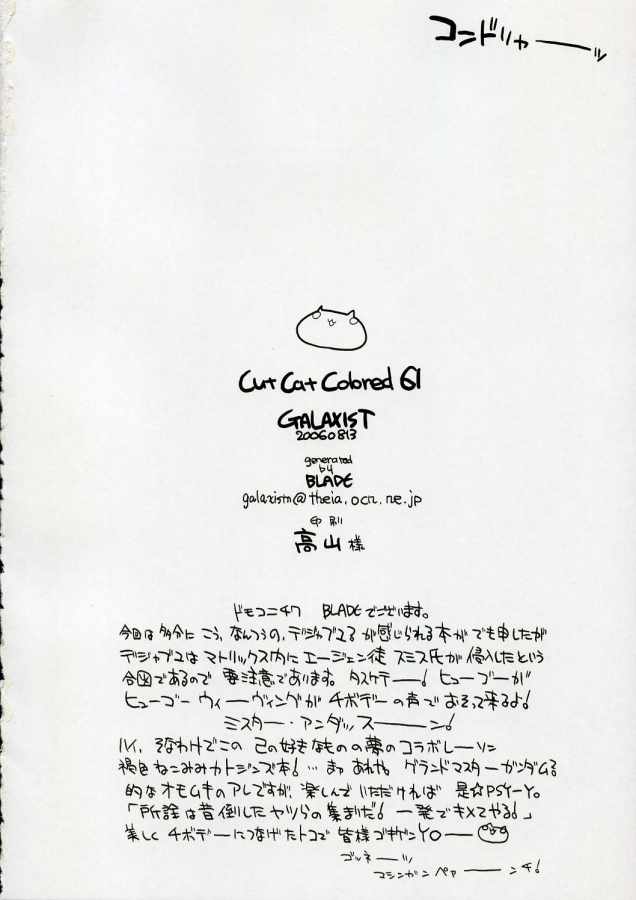 コンドリャーーッ
Cut Cat Colored 61
GALAXIST
20060813
generated
by
BLADE
galaxistn@theia.ocn.ne.jp
印刷
高山 様
ドモコニチワ BLADEでございます。
今回は多分に こう、なんつうの、デジャブュる が感じられる本が でも申したが
デジャブュは マトリックス内に エージェン徒 スミス氏が侵入したという
合図であるので 要注意であります。タスケテー! ヒューゴーが
ヒューゴー ウィーヴィングが チボデーの声で おそって来るよ!
ミスター・アンダッスーーン!
そなわけでこの 己の好きなものの夢のコラボレーソン
褐色ねこみみカトジンズ本!… まァ あれや。グランドマスターガンダムる
的なオモムキのアレですが、楽しんでいただければ 是☆PSY-Y。
「所詮は昔倒したヤツらの集まりだ! 一発でキメてやる!」
美しく チボデーにつなげたトコで 皆様ゴキゲンYOー
ゴルネーッ
マシンガン ペァーーンチ!